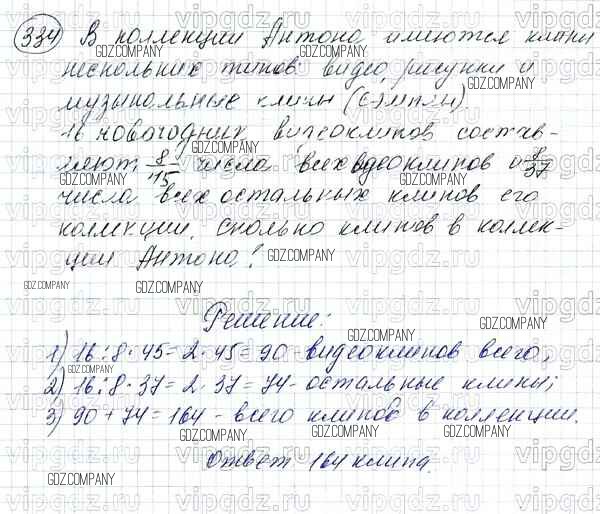 334 В коллекции Антона имеются клипы
нескольких типов: видео, рисунки и
музыкальные клипы (сэмплы).
16 новогодних видеоклипов состав-
ляют 8/15 числа всех видеоклипов и 8/37
числа всех остальных клипов его
коллекции. Сколько клипов в коллек-
ции Антона?
Решение:
1) 16:8·45=2·45=90-видеоклипов всего;
2) 16:8·37=2·37=74-остальные клипы;
3) 90+74=164-всего клипов в коллекции.
Ответ 164 клипа.
vipgdz.ru
GDZ.COMPANY